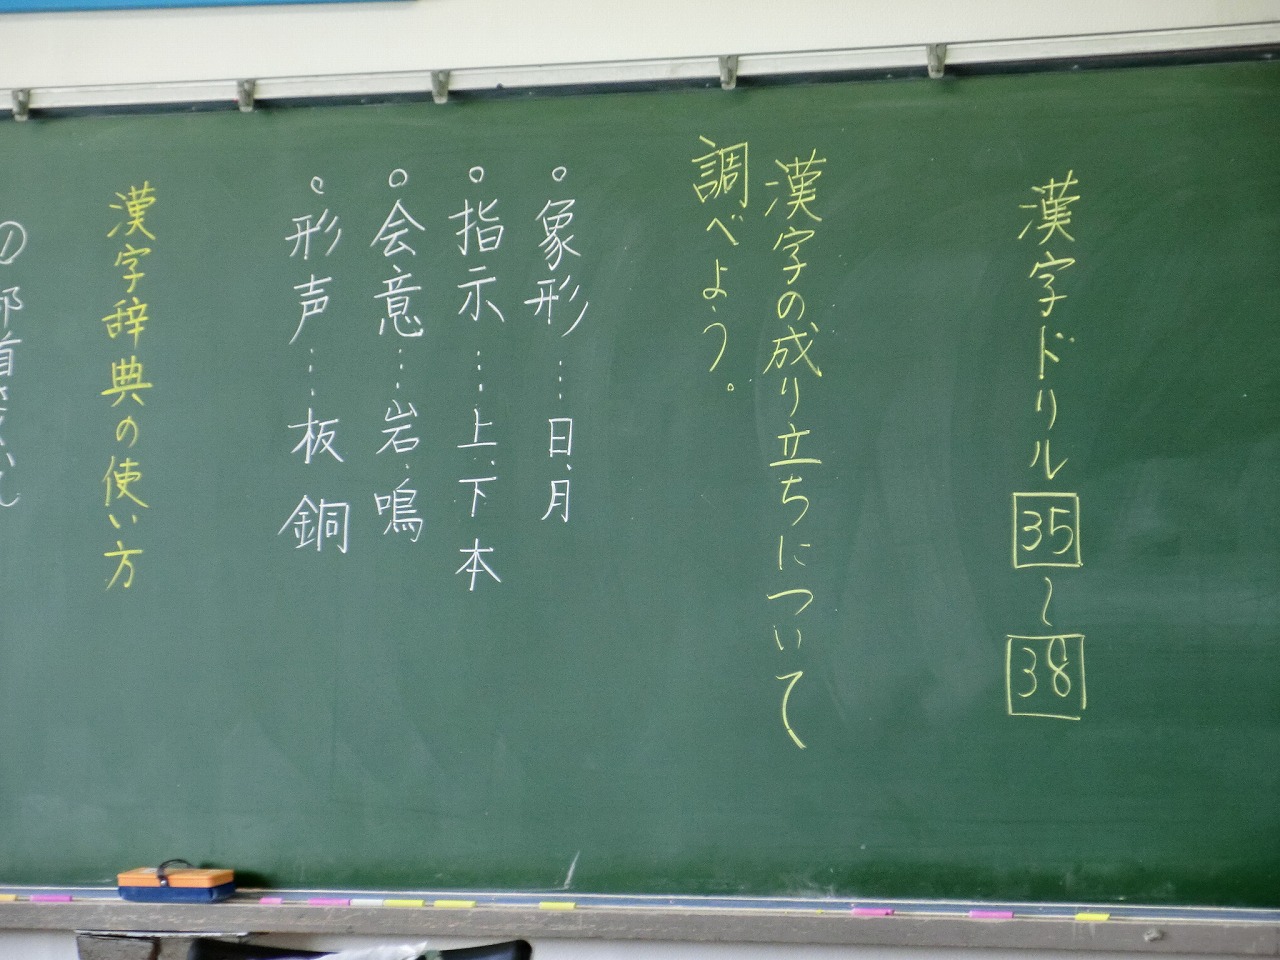 漢字ドリル 35 〜 38
漢字の成り立ちについて
調べよう。
○象形……日、月
○指示……上、下 本
○会意……岩、鳴
○形声……板 銅
漢字辞典の使い方
① 部首さくいん